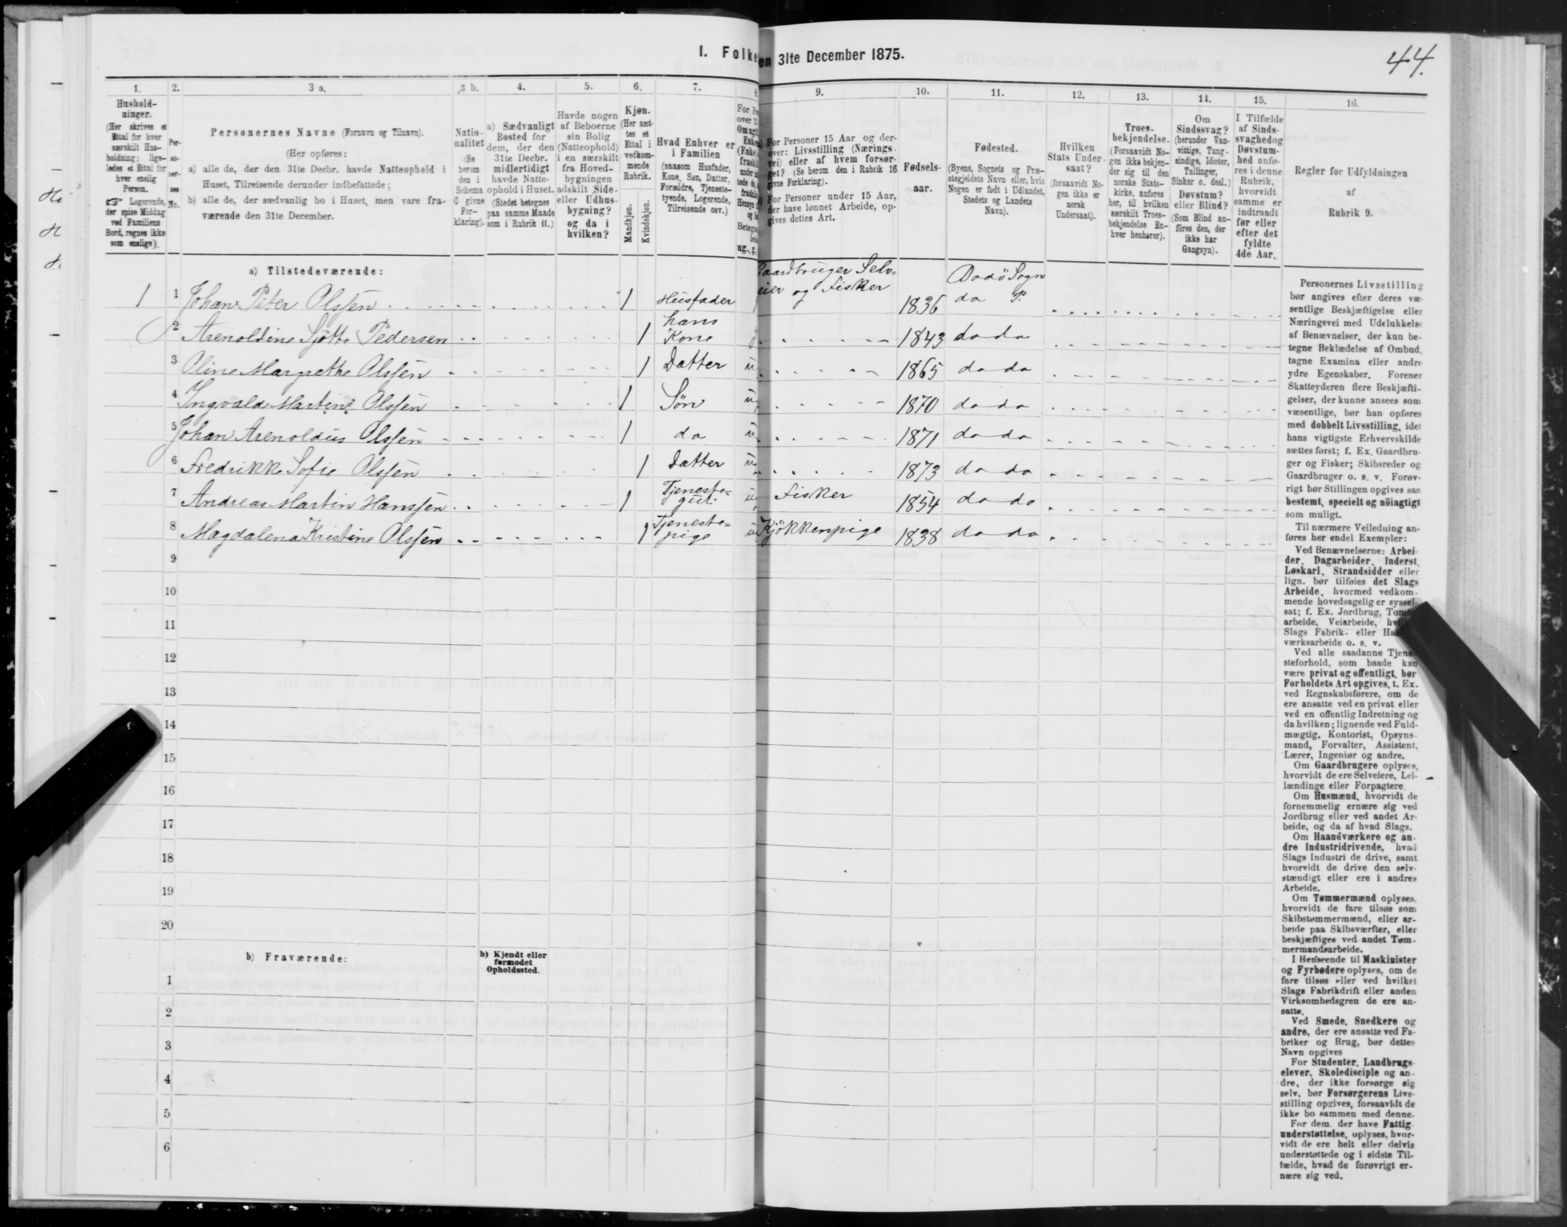 44.
I. Folke
en 31te December 1875.
1.
2.
3 a.
3 b.
4.
5.
6.
7.
8
9.
10.
11.
12.
13.
14.
15.
16.
Hushold-
ninger.
(Her skrives et
Ettal for hver
særskilt Hus-
holdning; lige-
ledes et Ettal for
hver enslig
Person.
☞ Logerende,
der spise Middag
ved Familiens
Bord, regnes ikke
som enslige).
Per-
so-
ner-
nes
No.
Personernes Navne (Fornavn og Tilnavn).
(Her opføres:
a) alle de, der den 31te Decbr. havde Natteophold i
Huset, Tilreisende derunder indbefattede;
b) alle de, der sædvanlig bo i Huset, men vare fra-
værende den 31te December.
Natio-
nalitet
(Se
herom
den i
Schema
O givne
For-
klaring).
a) Sædvanligt
Bosted for
dem, der den
31te Decbr.
midlertidigt
havde Natte-
ophold i Huset.
(Stedet betegnes
paa samme Maade
som i Rubrik 11.)
Havde nogen
af Beboerne
sin Bolig
(Natteophold)
i en særskilt
fra Hoved-
bygningen
adskilt Side-
eller Udhus-
bygning?
og da i
hvilken?
Kjøn.
(Her sæt-
tes et
Ettal i
vedkom-
mende
Rubrik.
Mandkjøn.
Kvindekjøn.
Hvad Enhver er
i Familien
(saasom Husfader,
Kone, Søn, Datter,
Forældre, Tjeneste-
tyende, Logerende,
Tilreisende osv.)
For Personer 15 Aar og der-
over: Livsstilling (Nærings-
vei) eller af hvem forsør-
get? (Se herom den i Rubrik 16
givne Forklaring).
For Personer under 15 Aar,
der have lønnet Arbeide, op-
gives dettes Art.
Fødsels-
aar.
Fødested.
(Byens, Sognets og Præ-
stegjeldets Navn eller, hvis
Nogen er født i Udlandet,
Stedets og Landets
Navn).
Hvilken
Stats Under-
saat?
(forsaavidt No-
gen ikke er
norsk
Undersaat).
Troes-
bekjendelse.
(Forsaavidt No-
gen ikke bekjen-
der sig til den
norske Stats-
kirke, anføres
her, til hvilken
særskilt Troes-
bekjendelse En-
hver henhører).
Om
Sindssvag?
(herunder Van-
vittige, Tung-
sindige, Idioter,
Tullinger,
Sinker o. desl.)
Døvstum?
eller Blind?
(Som Blind an-
føres den, der
ikke har
Gangsyn).
I Tilfælde
af Sinds-
svaghed og
Døvstum-
hed anfø-
res i denne
Rubrik,
hvorvidt
samme er
indtraadt
før eller
efter det
fyldte
4de Aar.
Regler for Udfyldningen
af
Rubrik 9.
a) Tilstedeværende:
Gaardbruger Selv-
eier og Fisker
Bodö Sogn
1 1 Johan Peter Olssen 1 Husfader 1836 do P.
2 Arenoldine Sjötte Pedersen 1 hans Kone 1843 do do
3 Oline Margrethe Olssen 1 Datter u 1865 do do
4 Ingvald Martini Olssen 1 Søn u 1870 do do
5 Johan Arenoldus Olssen 1 do u 1871 do do
6 Fredrikke Sofie Olssen 1 Datter u 1873 do do
7 Andreas Martin Hanssen 1 Tjeneste-gut u Fisker 1854 do do
8 Magdalena Kristine Olssen 1 Tjeneste-pige u Kjökkenpige 1838 do do
9
10
11
12
13
14
15
16
17
18
19
20
b) Fraværende:
b) Kjendt eller
formodet
Opholdssted.
1
2
3
4
5
6
Personernes Livsstilling
bør angives efter deres væ-
sentlige Beskjæftigelse eller
Næringsvei med Udelukkelse
af Benævnelser, der kun be-
tegne Beklædelse af Ombud,
tagne Examina eller andre
ydre Egenskaber. Forener
Skatteyderen flere Beskjæfti-
gelser, der kunne ansees som
væsentlige, bør han opføres
med dobbelt Livsstilling, idet
hans vigtigste Erhvervskilde
sættes først; f. Ex. Gaardbru-
ger og Fisker; Skibsreder og
Gaardbruger o. s. v. Forøv-
rigt bør Stillingen opgives saa
bestemt, specielt og nöiagtigt
som muligt.
Til nærmere Veiledning an-
føres her endel Exempler:
Ved Benævnelserne: Arbei-
der, Dagarbeider, Inderst,
Løskarl, Strandsidder eller
lign. bør tilføies det Slags
Arbeide, hvormed vedkom-
mende hovedsagelig er syssel-
sat; f. Ex. Jordbrug, Tomte-
arbeide, Veiarbeide,
Slags Fabrik- eller
værksarbeide o. s. v.
Ved alle saadanne Tjene-
steforhold, som baade kan
være privat og offentligt, bør
Forholdets Art opgives, t. Ex.
ved Regnskabsførere, om de
ere ansatte ved en privat eller
ved en offentlig Indretning og
da hvilken; lignende ved Fuld-
mægtig, Kontorist, Opsyns-
mand, Forvalter, Assistent,
Lærer, Ingeniør og andre.
Om Gaardbrugere oplyses,
hvorvidt de ere Selveiere, Lei-
lændinge eller Forpagtere.
Om Husmænd, hvorvidt de
fornemmelig ernære sig ved
Jordbrug eller ved andet Ar-
beide, og da af hvad Slags.
Om Haandværkere og an-
dre Industridrivende, hvad
Slags Industri de drive, samt
hvorvidt de drive den selv-
stændigt eller ere i andres
Arbeide.
Om Tømmermænd oplyses,
hvorvidt de fare tilsøs som
Skibstømmermænd, eller ar-
beide paa Skibsværfter, eller
beskjæftiges ved andet Tøm-
mermandsarbeide.
I Henseende til Maskinister
og Fyrbødere oplyses, om de
fare tilsøs eller ved hvilket
Slags Fabrikdrift eller anden
Virksomhedsgren de ere an-
satte.
Ved Smede, Snedkere og
andre, der ere ansatte ved Fa-
briker og Brug, bør dettes
Navn opgives
For Studenter, Landbrugs-
elever, Skoledisciple og an-
dre, der ikke forsørge sig
selv, bør Forsørgerens Livs-
stilling opgives, forsaavidt de
ikke bo sammen med denne.
For dem, der have Fattig-
understøttelse, oplyses, hvor-
vidt de ere helt eller delvis
understøttede og i sidste Til-
fælde, hvad de forøvrigt er-
nære sig ved.